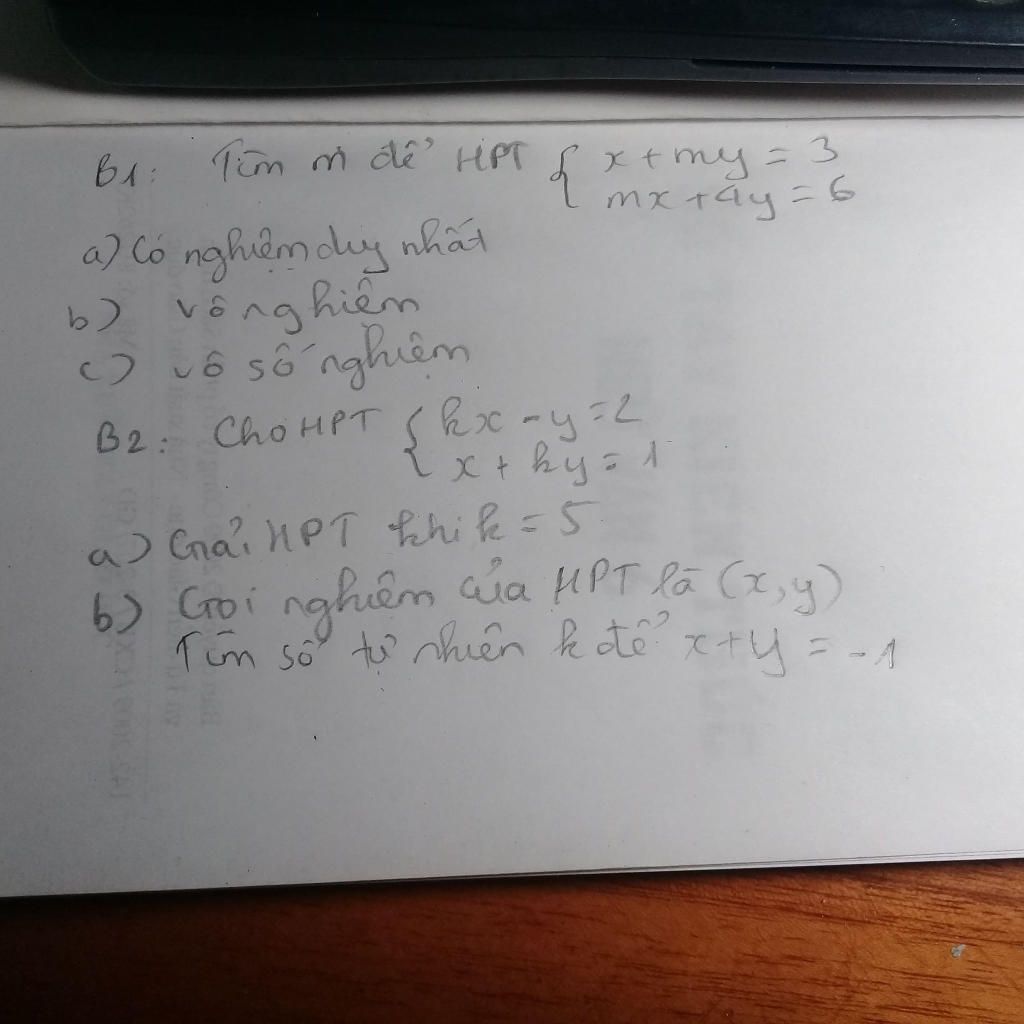 B1: Tìm m để HPT { x + my = 3
mx + 4y = 6
a) Có nghiệm duy nhất
b) vô nghiêm
c) vô số nghiệm
B2: Cho HPT { kx - y = 2
x + ky = 1
a) Giải HPT khi k = 5
b) Gọi nghiệm của HPT là (x, y)
Tìm số tự nhiên k để x + y = -1